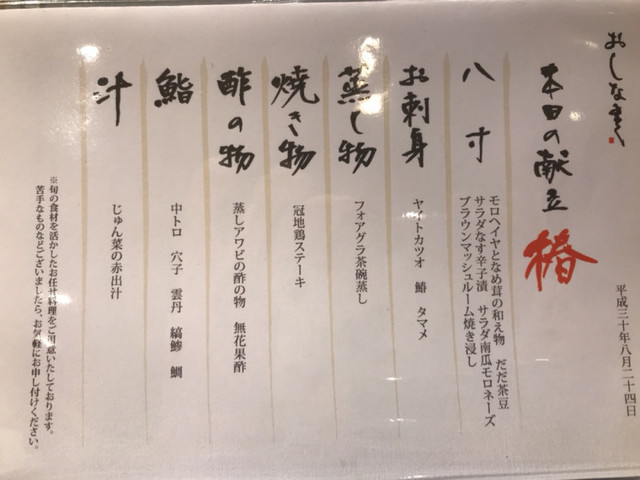 おしながき
本日の献立 椿
平成三十年八月二十四日
八寸
モロヘイヤとなめ茸の和え物 だだ茶豆
サラダなす辛子漬 サラダ南瓜モロネーズ
ブラウンマッシュルーム焼き浸し
お刺身
ヤイトカツオ 鰆 タマメ
蒸し物
フォアグラ茶碗蒸し
焼き物
冠地鶏ステーキ
酢の物
蒸しアワビの酢の物 無花果酢
鮨
中トロ 穴子 雲丹 縞鯵 鯛
汁
じゅん菜の赤出汁
※旬の食材を活かしたお任せ料理をご用意いたしております。
苦手なものなどございましたら、お気軽にお申し付けください。